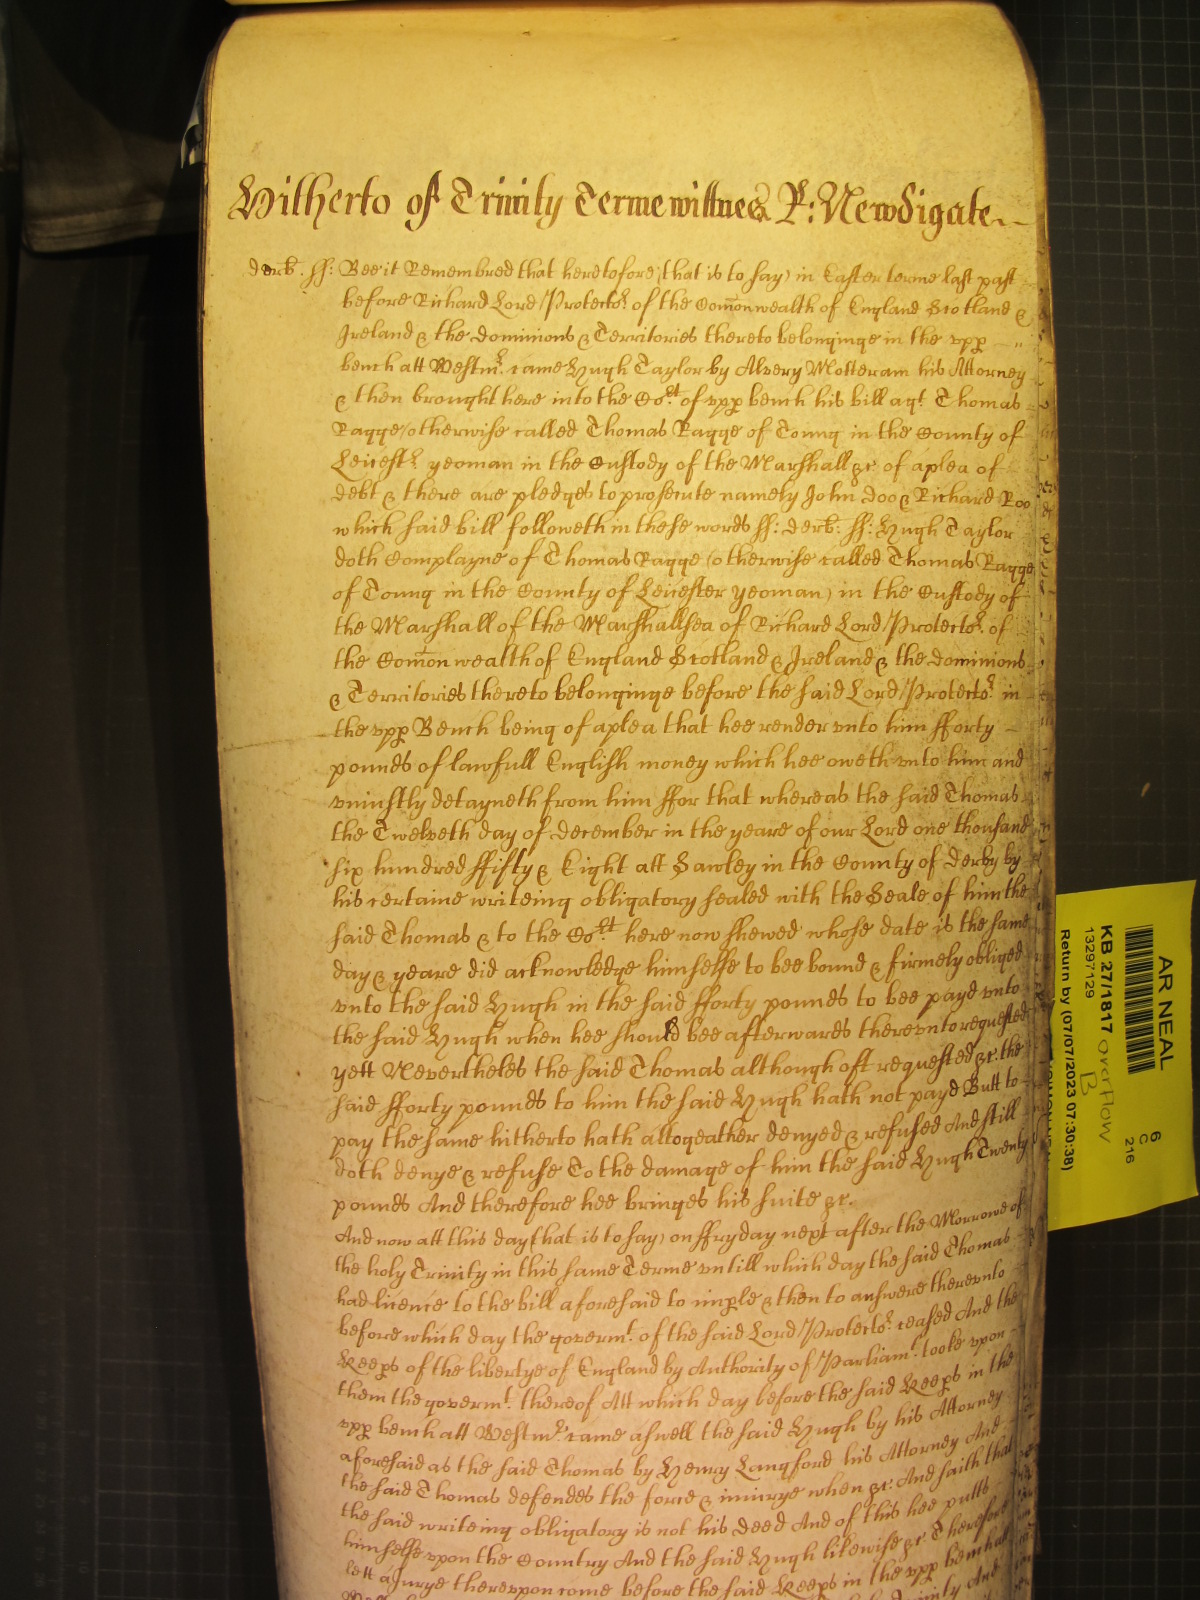 Hitherto of Trinity Terme wittnes P: Newdigate
derb. ss: Bee it Remembred that heretofore (that is to say) in Easter terme last past
before Richard Lord Protector of the Comonwealth of England Scotland &
Ireland & the dominions & Territories thereto belonginge in the upp
bench att Westmr came Hugh Taylor by Alvery Motteram his Attorney
& then brought here into the Cort of upp bench his bill agt Thomas
Ragge (otherwise called Thomas Ragge of Tonng in the County of
Leicestr yeoman in the Custody of the Marshall &c of a plea of
debt & there are pledges to prosecute namely John Doo & Richard Roo
which said bill followeth in these words ss: derb: ss: Hugh Taylor
doth Complayne of Thomas Ragge (otherwise called Thomas Ragge
of Tonng in the County of Leicester yeoman) in the Custody of
the Marshall of the Marshallsea of Richard Lord Protector of
the Comon wealth of England Scotland & Ireland & the dominions
& Territories thereto belonginge before the said Lord Protector in
the upp Bench being of a plea that hee render unto him fforty
pounds of lawfull English money which hee oweth unto him and
uniustly detayneth from him ffor that whereas the said Thomas
the Twelveth day of december in the yeare of our Lord one thousand
six hundred ffifty & Eight att Sawley in the County of derby by
his certaine writeing obligatory sealed with the Seale of him the
said Thomas & to the Cort here now shewed whose date is the same
day & yeare did acknowledge himselfe to bee bound & firmely obliged
unto the said Hugh in the said fforty pounds to bee payd unto
the said Hugh when hee should bee afterwards thereunto requested
yett Nevertheles the said Thomas although oft requested &c. the
said fforty pounds to him the said Hugh hath not payd Butt to
pay the same hitherto hath altogeather denyed & refused And still
doth denye & refuse To the damage of him the said Hugh Twenty
pounds And therefore hee bringes his suite &c.
And now att this day (that is to say) on ffryday next after the Morrowe of
the holy Trinity in this same Terme untill which day the said Thomas
had licence to the bill aforesaid to imple & then to answere thereunto
before which day the govermt. of the said Lord Protector ceased And the
Keeps of the libertye of England by Authority of Parliamt. tooke upon
them the govermt. thereof Att which day before the said Keeps in the
upp bench att Westmr came aswell the said Hugh by his Attorney
aforesaid as the said Thomas by Henry Langford his Attorney And
the said Thomas defendes the force & iniurye when &c: And saith that
the said writeing obligatory is not his deed And of this hee putts
himselfe upon the Country And the said Hugh likewise &c. Therefore
lett a Jurye thereupon come before the said Keeps in the upp bench att
AR NEAL
KB 27/1817 overflow
B
13297129
Return by (07/07/2023 07:30:38)
6
C
216